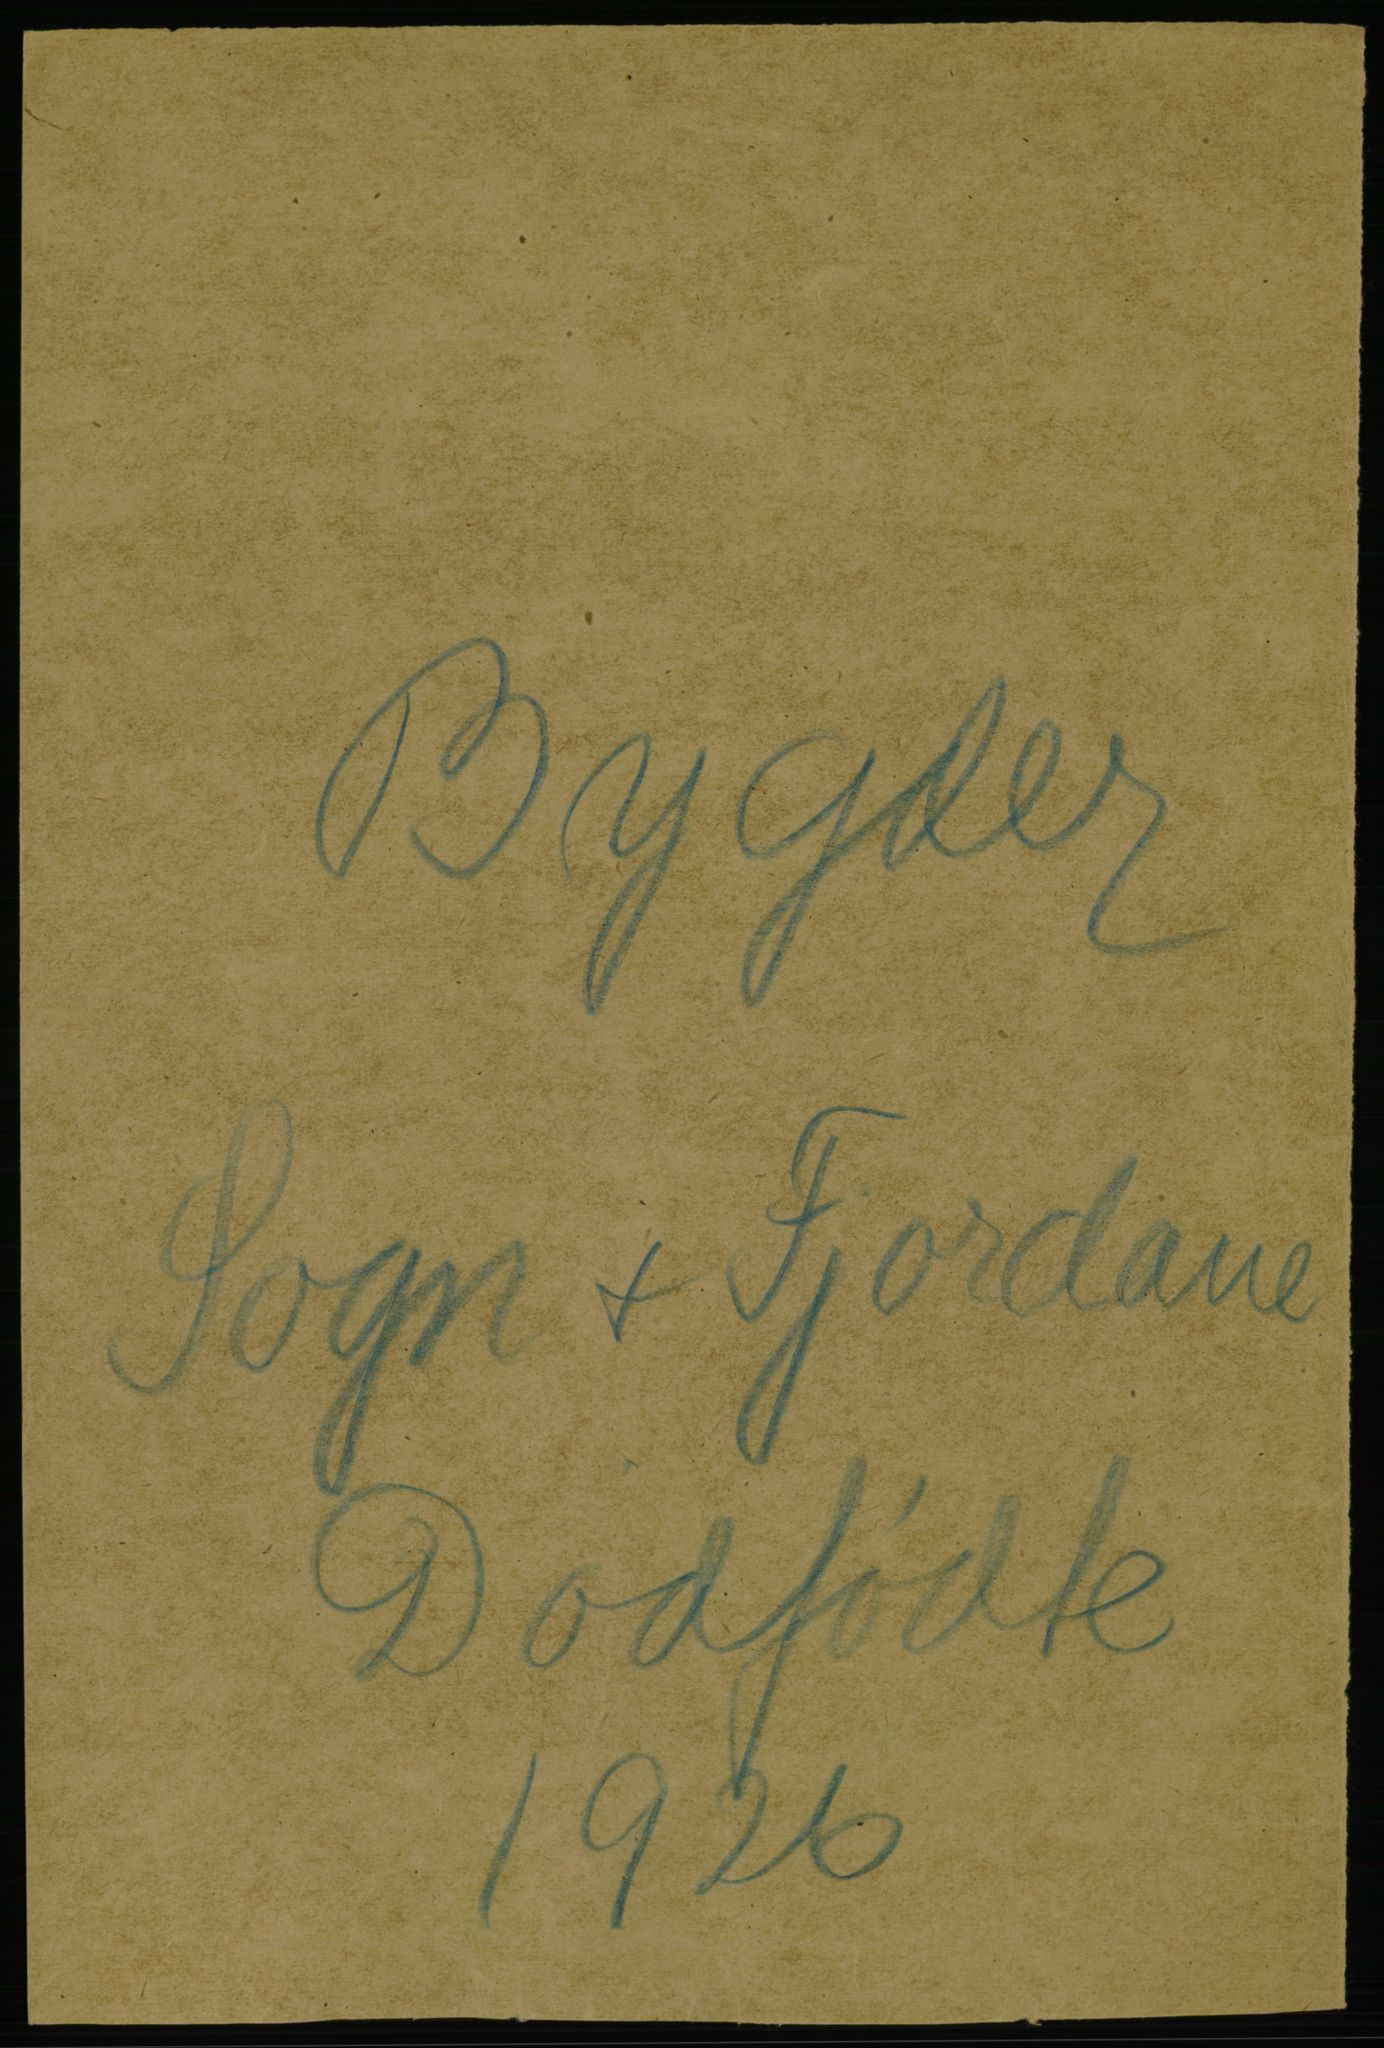 Bygder
Sogn + Fjordane
Dödfödte
1926